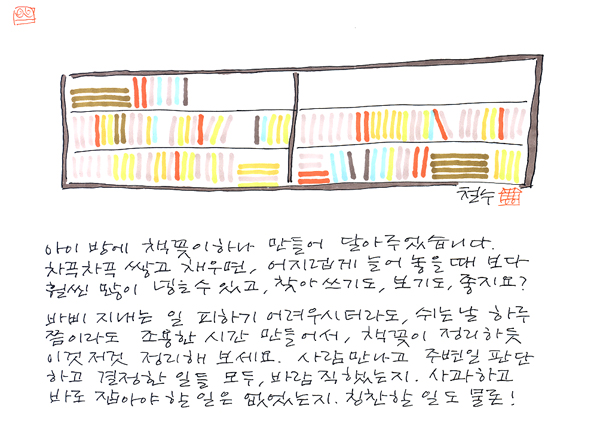 철수
아이 방에 책꽂이하나 만들어 달아주었습니다.
차곡차곡 쌓고 채우면, 어지럽게 늘어 놓을 때 보다
훨씬 많이 넣을수 있고, 찾아 쓰기도, 보기도, 좋지요?
바삐 지내는 일 피하기 어려우시더라도, 쉬는 날 하루
쯤이라도 조용한 시간 만들어서, 책꽂이 정리하듯
이것저것 정리해 보세요. 사람만나고 주변일 판단
하고 결정한 일들 모두, 바람직했는지. 사과하고
바로 잡아야 할 일은 없었는지. 칭찬할 일도 물론!